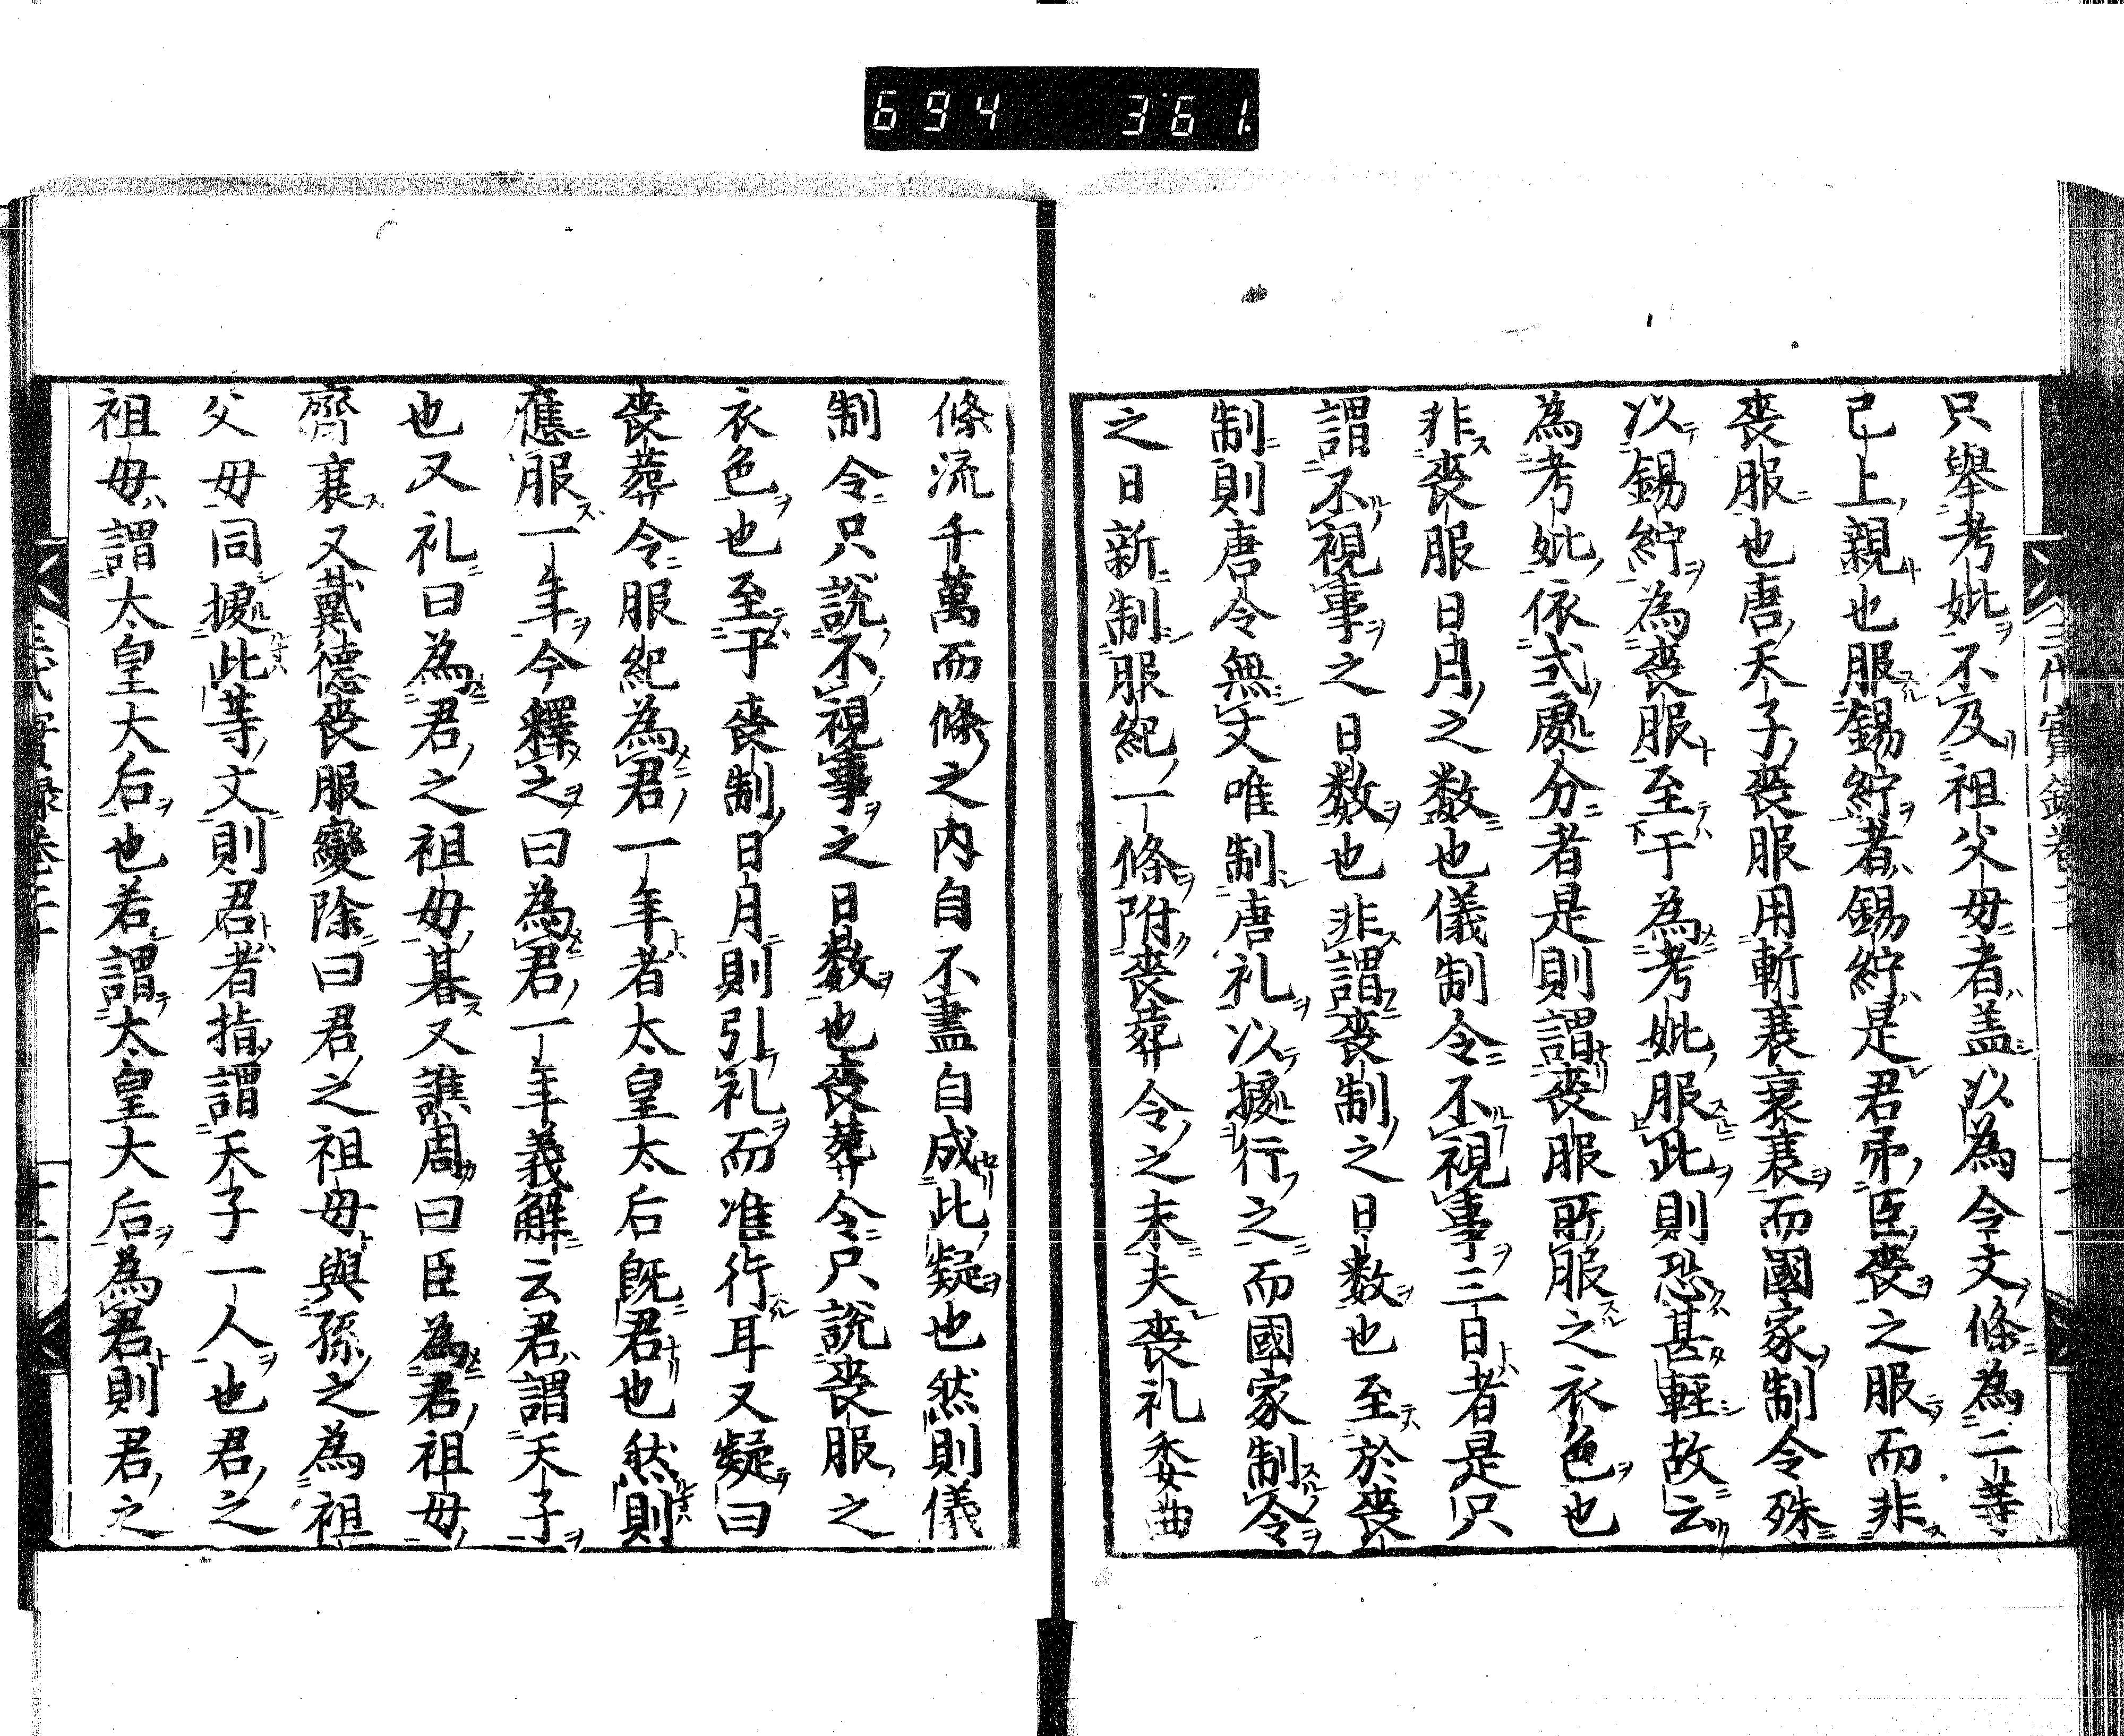 694 361
只舉考妣不及祖父母者盖以為令文條為二等
已上親也服錫紵者錫紵是君吊臣喪之服而非
喪服也唐天子喪服用斬衰齊衰而國家制令殊
以錫紵為喪服至于為考妣服此則恐甚輕故云
為考妣依式處分者是則謂喪服所服之衣色也
非喪服日月之数也儀制令不視事三日者是只
謂不視事之日数也非謂喪制之日数也至於喪
制則唐令無文唯制唐礼以據行之而國家制令
之日新制服紀一條附喪葬令之末夫喪礼委曲
條流千萬而條之内自不盡自成此疑也然則儀
制令只説不視事之日数也喪葬令只説喪服之
衣色也至于喪制日月則引礼而准行耳又疑曰
喪葬令服紀為君一年者太皇太后既君也然則
應服一年今釋之曰為君一年義解云君謂天子
也又礼曰為君之祖母朞又譙周曰臣為君祖母
齊衰又戴德喪服變除曰君之祖母與孫之為祖
父母同據此等文則君者指謂天子一人也君之
祖母謂太皇大后也若謂太皇大后為君則君之